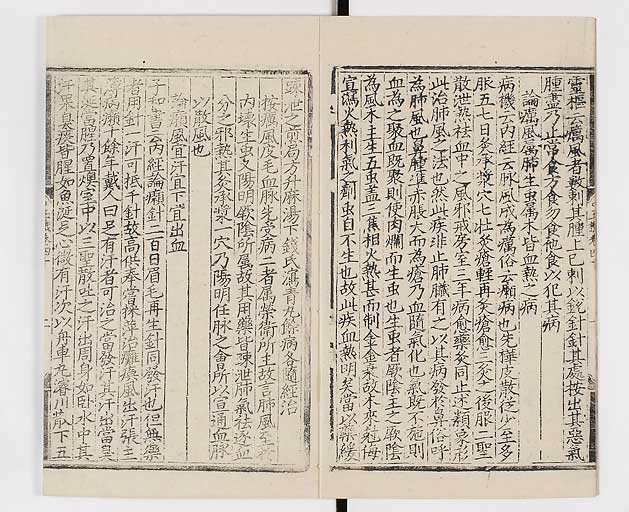 靈樞云癘風者數刺其腫上已刺以銳針針其處按出其惡氣
腫盡乃止常食方食勿食他食以犯其病
論癘風属肺生虫属木皆血熱之病
病機云內經云脉風成為癘俗云癩病也先樺皮散從少至多
服五七日灸承漿穴七壯灸瘡輕再灸瘡愈三灸之後服二聖
散泄熱祛血中之風邪戒房室三年病愈藥灸同止述類象形
此治肺風之法也然此疾非止肺臟有之以其病發於鼻俗呼
為肺風也鼻腫準赤脹大而為瘡乃血隨氣化也氣既不施則
血為之聚血既聚則使肉爛而生虫也生虫者厥陰主之厥陰
為風木主生五虫盖三焦相火熱甚而制金金衰故木來剋侮
宜瀉火熱利氣之劑虫自不生也故此疾血熱明矣當以藥緩
踈泄之前局方升麻湯下錢氏瀉青丸餘病各隨經治
按癘風皮毛血脉先受病二者属榮衛所主故言肺風至於
內壞生虫又陽明厥陰所属故其用藥皆踈泄肺氣祛逐血
分之邪熱其灸承漿一穴乃陽明任脉之會所以宣通血脉
以散風也
論癘風宜汗宜下宜出血
子和書云內經論癩針二百日眉毛再生針同發汗也但無藥
者用針一汗可抵千針故高供奉嘗採萍治癱瘓風出汗張主
簿病癩十餘年戴人曰足有汗者可治之當發汗其汗出當臭
其涎當腥乃置燠室中以三聖散吐之汗出周身如臥水中其
汗果臭痰皆腥如魚涎足心微有汗次以舟車丸濬川散下五